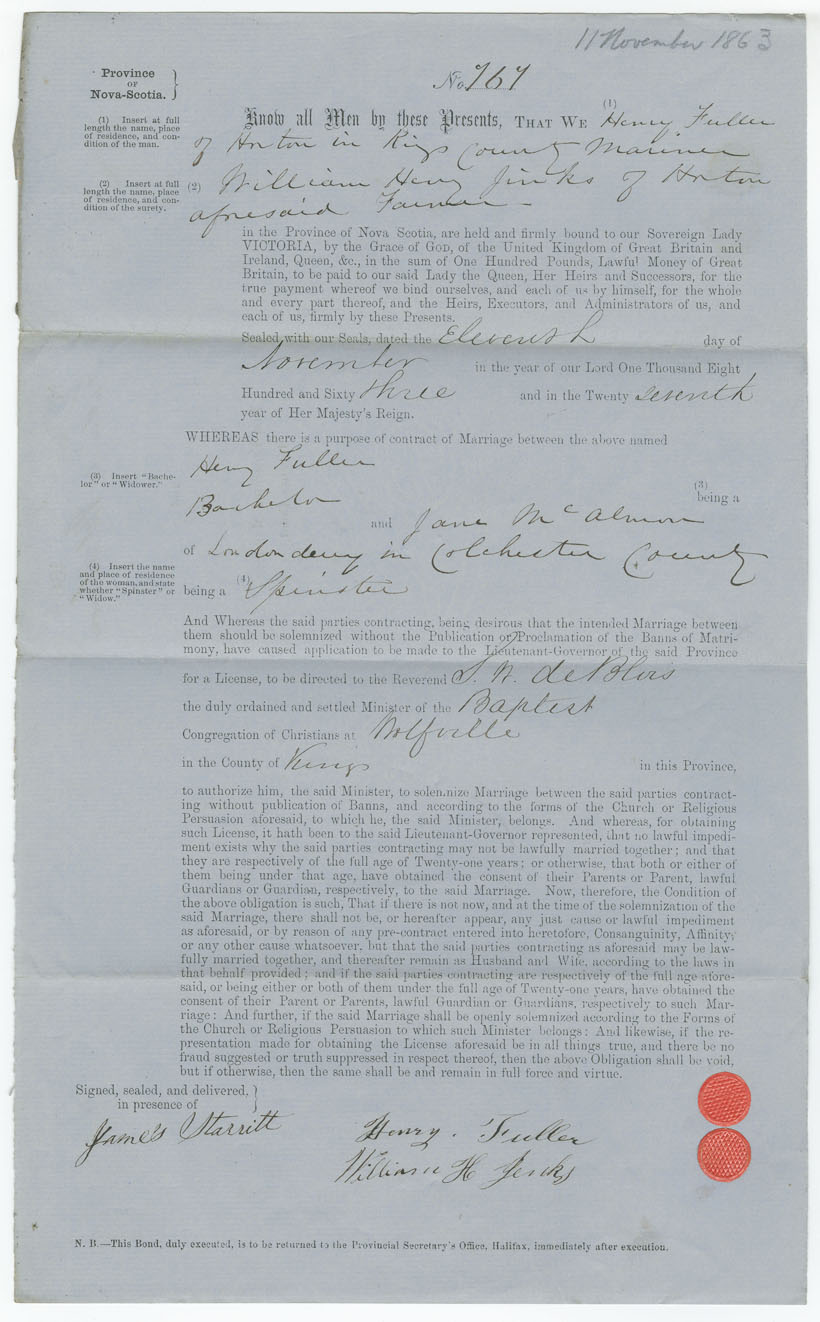 11 November 1863
Province
OF
Nova-Scotia.
No. 767
(1) Insert at full
length the name, place
of residence, and con-
dition of the man.
Know all Men by these Presents, THAT WE (1) Henry Fuller
of Horton in Kings County Mariner
(2) Insert at full
length the name, place
of residence, and con-
dition of the surety.
(2) William Henry Jinks of Horton
aforesaid Farmer
in the Province of Nova Scotia, are held and firmly bound to our Sovereign Lady
VICTORIA, by the Grace of GOD, of the United Kingdom of Great Britain and
Ireland, Queen, &c., in the sum of One Hundred Pounds, Lawful Money of Great
Britain, to be paid to our said Lady the Queen, Her Heirs and Successors, for the
true payment whereof we bind ourselves, and each of us by himself, for the whole
and every part thereof, and the Heirs, Executors, and Administrators of us, and
each of us, firmly by these Presents.
Sealed with our Seals, dated the Eleventh day of
November in the year of our Lord One Thousand Eight
Hundred and Sixty three and in the Twenty seventh
year of Her Majesty's Reign.
WHEREAS there is a purpose of contract of Marriage between the above named
Henry Fuller
(3) Insert "Bache-
lor" or "Widower."
(3)
being a
Bachelor
and Jane McAlmon
of Londonderry in Colchester County
(4) Insert the name
and place of residence
of the woman, and state
whether "Spinster" or
"Widow."
being a (4) Spinster
And Whereas the said parties contracting, being desirous that the intended Marriage between
them should be solemnized without the Publication or Proclamation of the Banns of Matri-
mony, have caused application to be made to the Lieutenant-Governor of the said Province
for a License, to be directed to the Reverend S. W. deBlois
the duly ordained and settled Minister of the Baptist
Congregation of Christians at Wolfville
in the County of Kings in this Province,
to authorize him, the said Minister, to solemnize Marriage between the said parties contract-
ing without publication of Banns, and according to the forms of the Church or Religious
Persuasion aforesaid, to which he, the said Minister, belongs. And whereas, for obtaining
such License, it hath been to the said Lieutenant-Governor represented, that no lawful impedi-
ment exists why the said parties contracting may not be lawfully married together; and that
they are respectively of the full age of Twenty-one years; or otherwise, that both or either of
them being under that age, have obtained the consent of their Parents or Parent, lawful
Guardians or Guardian, respectively, to the said Marriage. Now, therefore, the Condition of
the above obligation is such, That if there is not now, and at the time of the solemnization of the
said Marriage, there shall not be, or hereafter appear, any just cause or lawful impediment
as aforesaid, or by reason of any pre-contract entered into heretofore, Consanguinity, Affinity,
or any other cause whatsoever, but that the said parties contracting as aforesaid may be law-
fully married together, and thereafter remain as Husband and Wife, according to the laws in
that behalf provided; and if the said parties contracting are respectively of the full age afore-
said, or being either or both of them under the full age of Twenty-one years, have obtained the
consent of their Parent or Parents, lawful Guardian or Guardians, respectively to such Mar-
riage: And further, if the said Marriage shall be openly solemnized according to the Forms of
the Church or Religious Persuasion to which such Minister belongs: And likewise, if the re-
presentation made for obtaining the License aforesaid be in all things true, and there be no
fraud suggested or truth suppressed in respect thereof, then the above Obligation shall be void,
but if otherwise, then the same shall be and remain in full force and virtue.
Signed, sealed, and delivered,
in presence of
James Starritt
Henry. Fuller
William H Jenks
N. B.—This Bond, duly executed, is to be returned to the Provincial Secretary's Office, Halifax, immediately after execution.